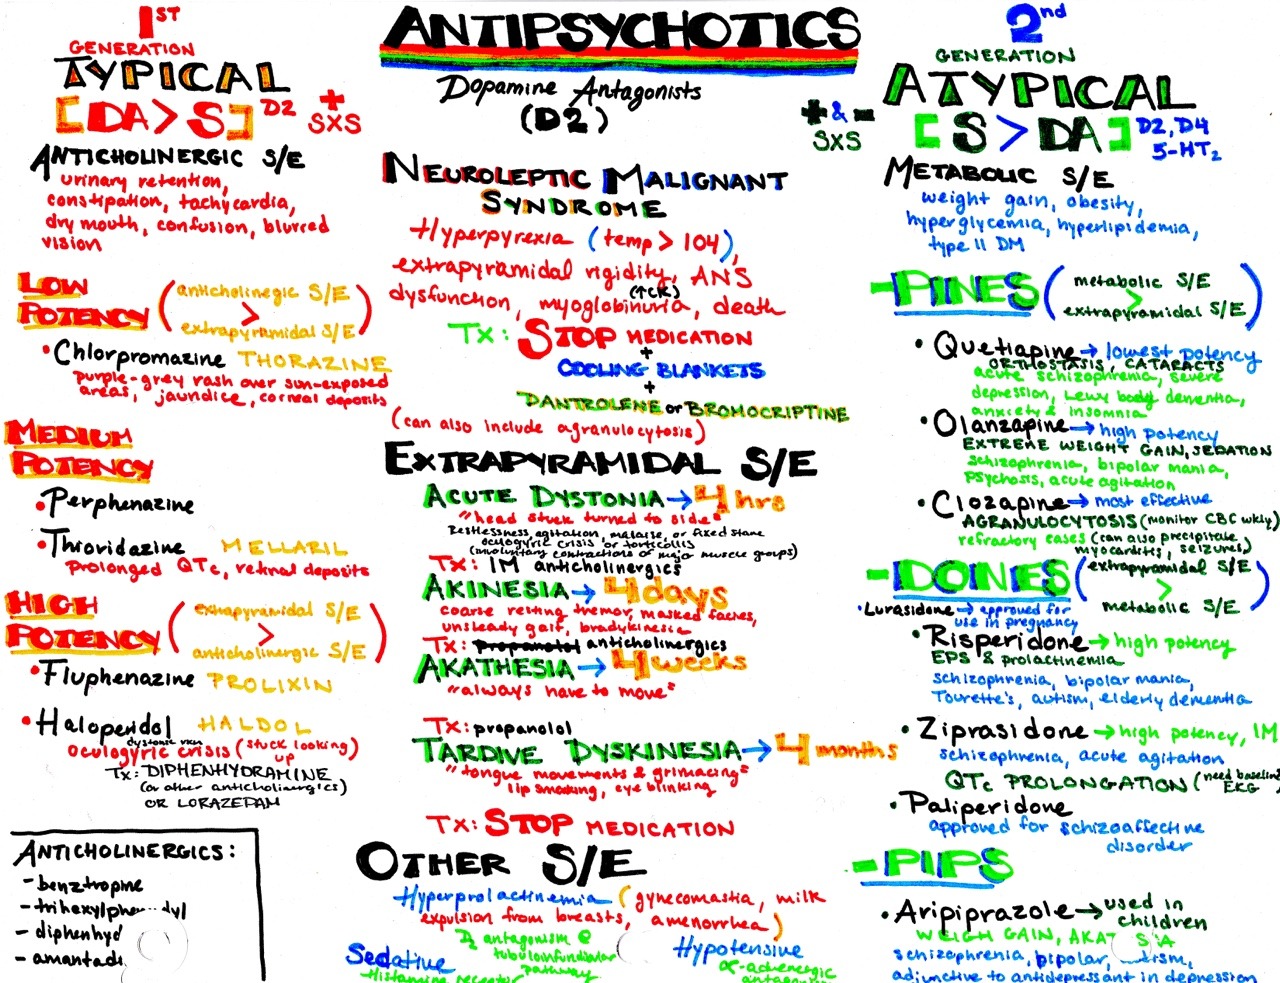 1ST
GENERATION
TYPICAL
[DA > S] D2 + SXS
ANTICHOLINERGIC S/E
urinary retention,
constipation, tachycardia,
dry mouth, confusion, blurred
vision
LOW
POTENCY
(anticholinegic S/E
>
extrapyramidal S/E)
• Chlorpromazine THORAZINE
purple-grey rash over sun-exposed
areas, jaundice, corneal deposits
MEDIUM
POTENCY
• Perphenazine
• Thioridazine MELLARIL
prolonged QTc, retinal deposits
HIGH
POTENCY
(extrapyramidal S/E
>
anticholinergic S/E)
• Fluphenazine PROLIXIN
• Haloperidol HALDOL
dystonic rxn
oculogyric crisis (stuck looking up)
Tx: DIPHENHYDRAMINE
(or other anticholinergics)
OR LORAZEPAM
ANTICHOLINERGICS:
- benztropine
- trihexylphe dyl
- diphenhyd
- amantadi
ANTIPSYCHOTICS
Dopamine Antagonists
(D2)
NEUROLEPTIC MALIGNANT
SYNDROME
Hyperpyrexia (temp > 104),
extrapyramidal rigidity, ANS
dysfunction, myoglobinuria, death
(↑CK)
Tx: STOP MEDICATION
+
COOLING BLANKETS
+
DANTROLENE or BROMOCRIPTINE
(can also include agranulocytosis)
EXTRAPYRAMIDAL S/E
ACUTE DYSTONIA → 4 hrs
"head stuck turned to side"
Restlessness agitation, malaise, or fixed stare
oculogyric crisis or torticollis
(involuntary contractions of major muscle groups)
Tx: IM anticholinergics
AKINESIA → 4 days
coarse resting tremor, masked facies,
unsteady gait, bradykinesia
Tx: propanolol anticholinergics
AKATHESIA → 4 weeks
"always have to move"
Tx: propanolol
TARDIVE DYSKINESIA → 4 months
"tongue movements & grimacing"
lip smoking, eye blinking
Tx: STOP MEDICATION
OTHER S/E
Hyperprolactinemia (gynecomastia, milk
expulsion from breasts, amenorrhea)
D2 antagonism @
tubuloinfundibular
pathway
Sedative
Histamine receptor
Hypotensive
α-adrenergic
antagonism
2nd
GENERATION
ATYPICAL
+ & - SXS
[S > DA] D2, D4
5-HT2
METABOLIC S/E
weight gain, obesity,
hyperglycemia, hyperlipidemia,
type II DM
-PINES
(metabolic S/E
>
extrapyramidal S/E)
• Quetiapine → lowest potency
ORTHOSTASIS, CATARACTS
acute schizophrenia, severe
depression, Lewy body dementia,
anxiety & insomnia
• Olanzapine → high potency
EXTREME WEIGHT GAIN, SEDATION
schizophrenia, bipolar mania,
psychosis, acute agitation
• Clozapine → most effective
AGRANULOCYTOSIS (monitor CBC wkly)
refractory cases (can also precipitate
myocarditis, seizures)
-DONES
(extrapyramidal S/E
>
metabolic S/E)
• Lurasidone → approved for
use in pregnancy
• Risperidone → high potency
EPS & prolactinemia
schizophrenia, bipolar mania,
Tourette's, autism, elderly dementia
• Ziprasidone → high potency, IM
schizophrenia, acute agitation
QTc PROLONGATION (need baseline
EKG)
• Paliperidone
approved for schizoaffective
disorder
-PIPS
• Aripiprazole → used in
children
WEIGH GAIN, AKAT SIA
schizophrenia, bipolar, tism,
adjunctive to antidepressant in depression